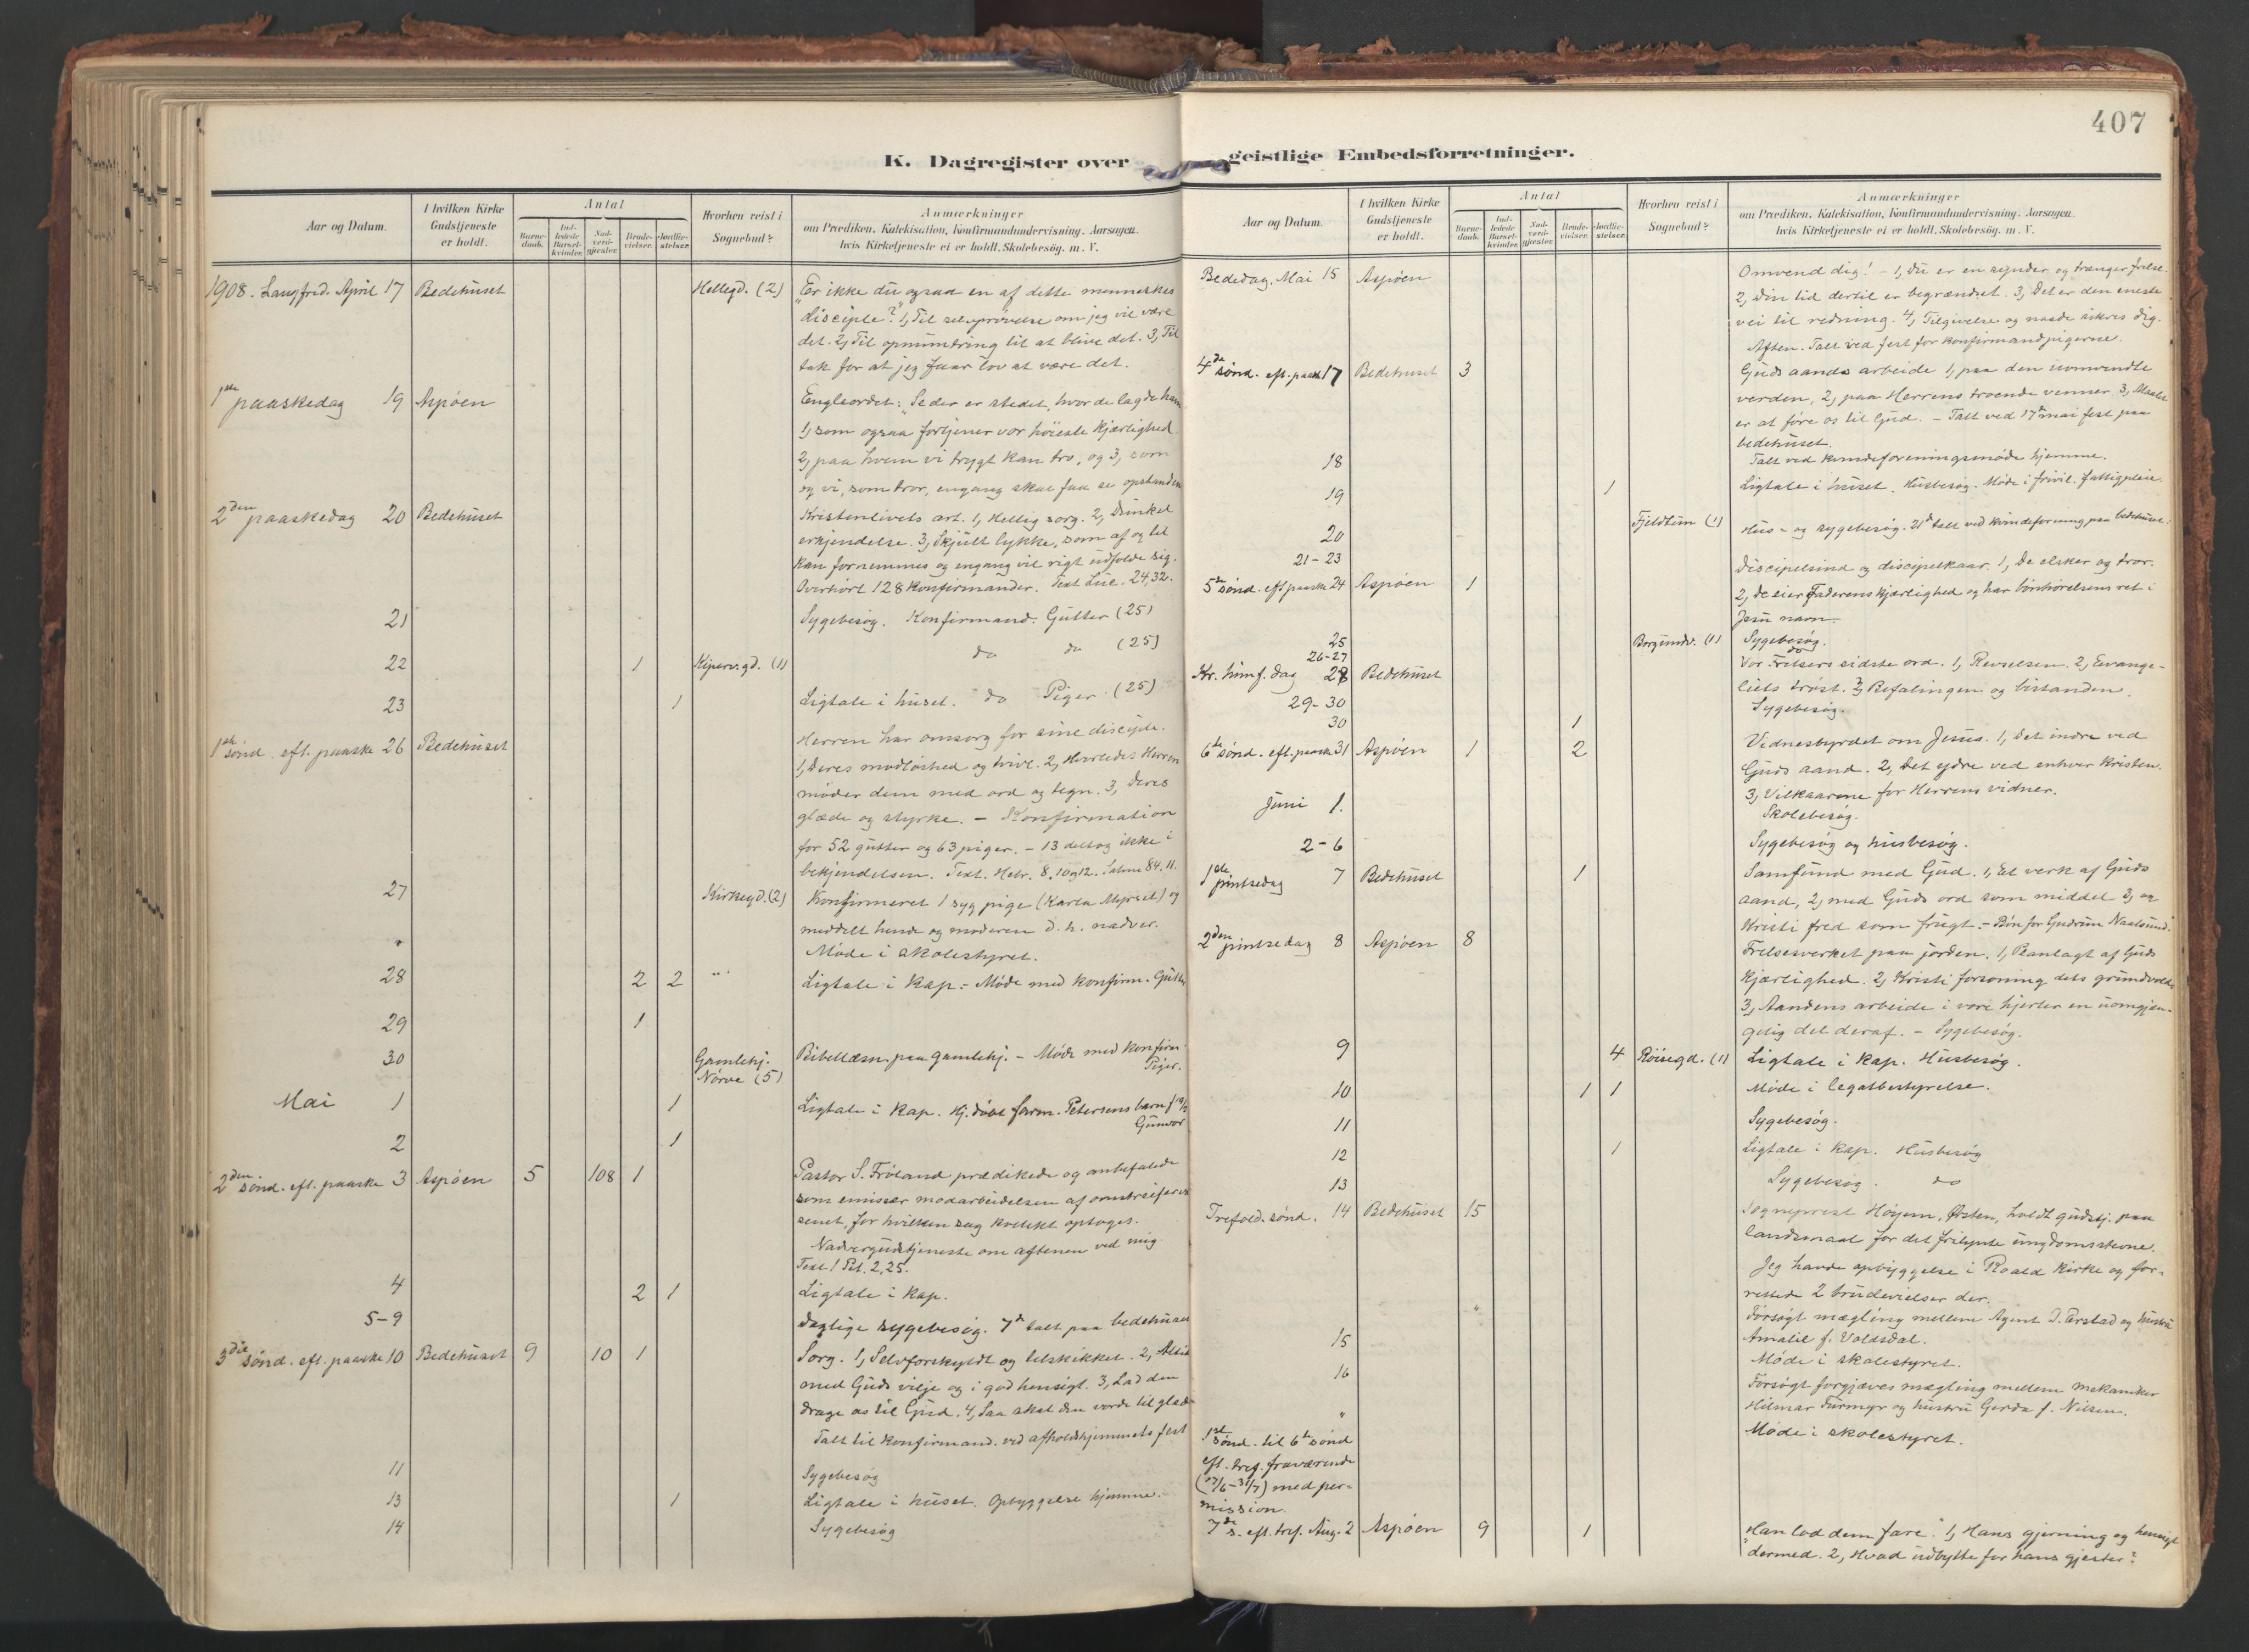 407
K. Dagregister over geistlige Embedsforretninger.
Aar og Datum.
I hvilken Kirke Gudstjeneste er holdt.
Antal
Barne-daab.
Ind-ledede Barsel-kvinder.
Nad-verd-gjester.
Brude-vielser.
Jordfæ-stelser.
Hvorhen reist i Sognebud?
Anmærkninger
om Prædiken, Katekisation, Konfirmandundervisning. Aarsagen.
hvis Kirketjeneste ei er holdt. Skolebesög. m. V.
1908. Langfred. April 17 Bedehuset Hellegd. (2) "Er ikke du ogsaa en af dette menneskes
disciple?" 1, Til selvprövelse om jeg vil være
det. 2, Til opmuntring til at blive det. 3, Til
tak for at jeg faar lov at være det.
1ste paaskedag 19 Aspöen Engleordet: "Se der er stedet, hvor de lagde ham
1, som ogsaa fortjener vor höieste kjærlighed
2, paa hvem vi trygt kan tro, og 3, som
og vi, som tror, engang skal faa se opstanden
2den paaskedag 20 Bedehuset Kristenlivets art. 1, Hellig sorg. 2, Dunkel
erkjendelse. 3, Skjult lykke, som af og til
kan fornemmes og engang vil rigt udfolde sig.
Overhört 128 konfirmander. Text Luc. 24,32.
21 Sygebesög. Konfirmand. Gutter (25)
22 1 Kiperv.gd. (1) do do (25)
23 1 Ligtale i huset. do Piger (25)
1ste sönd. eft. paaske 26 Bedehuset Herren har omsorg for sine disciple.
1, Deres modlöshed og tvivl. 2, Hvorledes Herren
möder dem med ord og tegn. 3, Deres
glæde og styrke. - Konfirmation
for 52 gutter og 63 piger. - 13 deltog ikke i
bekjendelsen. Text. Hebr. 8,10og12. Salme 84.11.
27 Kirkegd. (2) Konfirmeret 1 syg pige (Karla Myrset) og
meddelt hende og moderen d. h. nadver.
" Möde i skolestyret.
28 2 2 " Ligtale i kap. - Möde med konfirm. Gutter
29 1
30 Gamlehj. Nörve (5) Bibellæsn. paa gamlehj. - Möde med konfirm.
Piger.
Mai 1 1 Ligtale i kap. Hj.döbt form. Petersens barn
Gunvor
2 1
2den sönd. eft. paaske 3 Aspöen 5 108 1 Pastor S. Fröland prædikede og anbefalede
som emissær modarbeidelsen af
senet, for hvilken sag kollekt optoges.
Nadvergudstjeneste om aftenen ved mig
Text 1 Pet. 2,25.
4 2 1 Ligtale i kap.
5-9 Daglige sygebesög. 7de talt paa bedehuset
3die sönd. eft. paaske 10 Bedehuset 9 10 1 Sorg. 1, Selvforskyldt og tilskikket. 2, Altid
med Guds vilje og i god hensigt. 3, Lad den
drage os til Gud. 4, Saa skal den vorde til glæde
Talt til konfirmand. ved afholdshjemmets fest
11 Sygebesög
13 1 Ligtale i huset. Opbyggelse hjemme.
14 Sygebesög
Aar og Datum.
I hvilken Kirke Gudstjeneste er holdt.
Antal
Barne-daab.
Ind-ledede Barsel-kvinder.
Nad-verd-gjester.
Brude-vielser.
Jordfæ-stelser.
Hvorhen reist i Sognebud?
Anmærkninger
om Prædiken, Katekisation, Konfirmandundervisning. Aarsagen.
hvis Kirketjeneste ei er holdt. Skolebesög. m. V.
Bededag. Mai 15 Aspöen Omvend dig! - 1, Du er en synder og trænger frelse.
2, Din tid dertil er begrændset. 3, Det er den eneste
vei til redning. 4, Tilgivelse og naade sikres dig.
Aften. Talt ved fest for konfirmandpigerne.
4de sönd. eft. paaske 17 Bedehuset 3 Guds aands arbeide 1, paa den uomvendte
verden, 2, paa Herrens troende venner 3, Maalet
er at före os til Gud. - Talt ved 17de mai fest paa
bedehuset.
18 Talt ved kvindeforeningsmöde hjemme.
19 1 Ligtale i huset. Husbesög. Möde i frivil. fattigpleie.
20 Fjeldtun (1) Hus- og sygebesög. 21de talt ved kvindeforening paa bedehuset.
21-23
5te sönd. eft paaske 24 Aspöen 1 Discipelsind og discipelkaar. 1, De elsker og tror.
2, De eier Faderens kjærlighed og har bönhörelsens ret i
Jesu navn.
25 Borgundv. (1) Sygebesög.
26-27 do
Kr. himf. dag 28 Bedehuset Vor Frelsers sidste ord. 1, Revselsen. 2, Evange-
liets tröst. 3, Befalingen og bistanden.
29-30 Sygebesög.
30 1
6te sönd. eft. paaske 31 Aspöen 1 2 Vidnesbyrdet om Jesus. 1, Det indre ved
Guds aand. 2, Det ydre ved enhver kristen.
3, Vilkaarene for Herrens vidner.
Juni 1. Skolebesög.
2-6 Sygebesög og husbesög.
1ste pintsedag 7 Bedehuset 1 Samfund med Gud. 1, Et verk af Guds
aand, 2, med Guds ord som middel 3, og
Kristi fred som frugt. - Bön for Gudrun
2den pintsedag 8 Aspöen 8 Frelsesverket paa jorden. 1, Planlagt af Guds
kjærlighed. 2, Kristi forsoning dets grundvold.
3, Aandens arbeide i vore hjerter en uomgjæn-
gelig del deraf. - Sygebesög.
9 4 Röisegd. (1) Ligtale i kap. Husbesög.
10 1 1 Möde i legatbestyrelse.
11 Sygebesög.
12 1 Ligtale i kap. Husbesög
13 Sygebesög. do
Trefold. sönd. 14 Bedehuset 15 Sogneprest Höyem, Örsten, holdt gudstj. paa
landsmaal for det frilynte ungdomsstevne.
Jeg havde opbyggelse i Roald kirke og for-
rettede 2 brudevielser der.
" Forsögt mægling mellem Agent J. Aarstad og hustru
15 Amalie f. Voldsdal.
Möde i skolestyret.
16 Forsögt forgjæves mægling mellem mekaniker
Hilmar Furmyr og hustru Gerda f. Nilsen.
" Möde i skolestyret.
1ste sönd. til 6te sönd
eft. tref. fraværende
(17/6-31/7) med per-
mission.
7de s. eft. tref. Aug. 2 Aspöen 9 1 "Han lod dem fare." 1, Hans gjerning og hensigt
dermed. 2, Hvad udbytte for hans gjester?